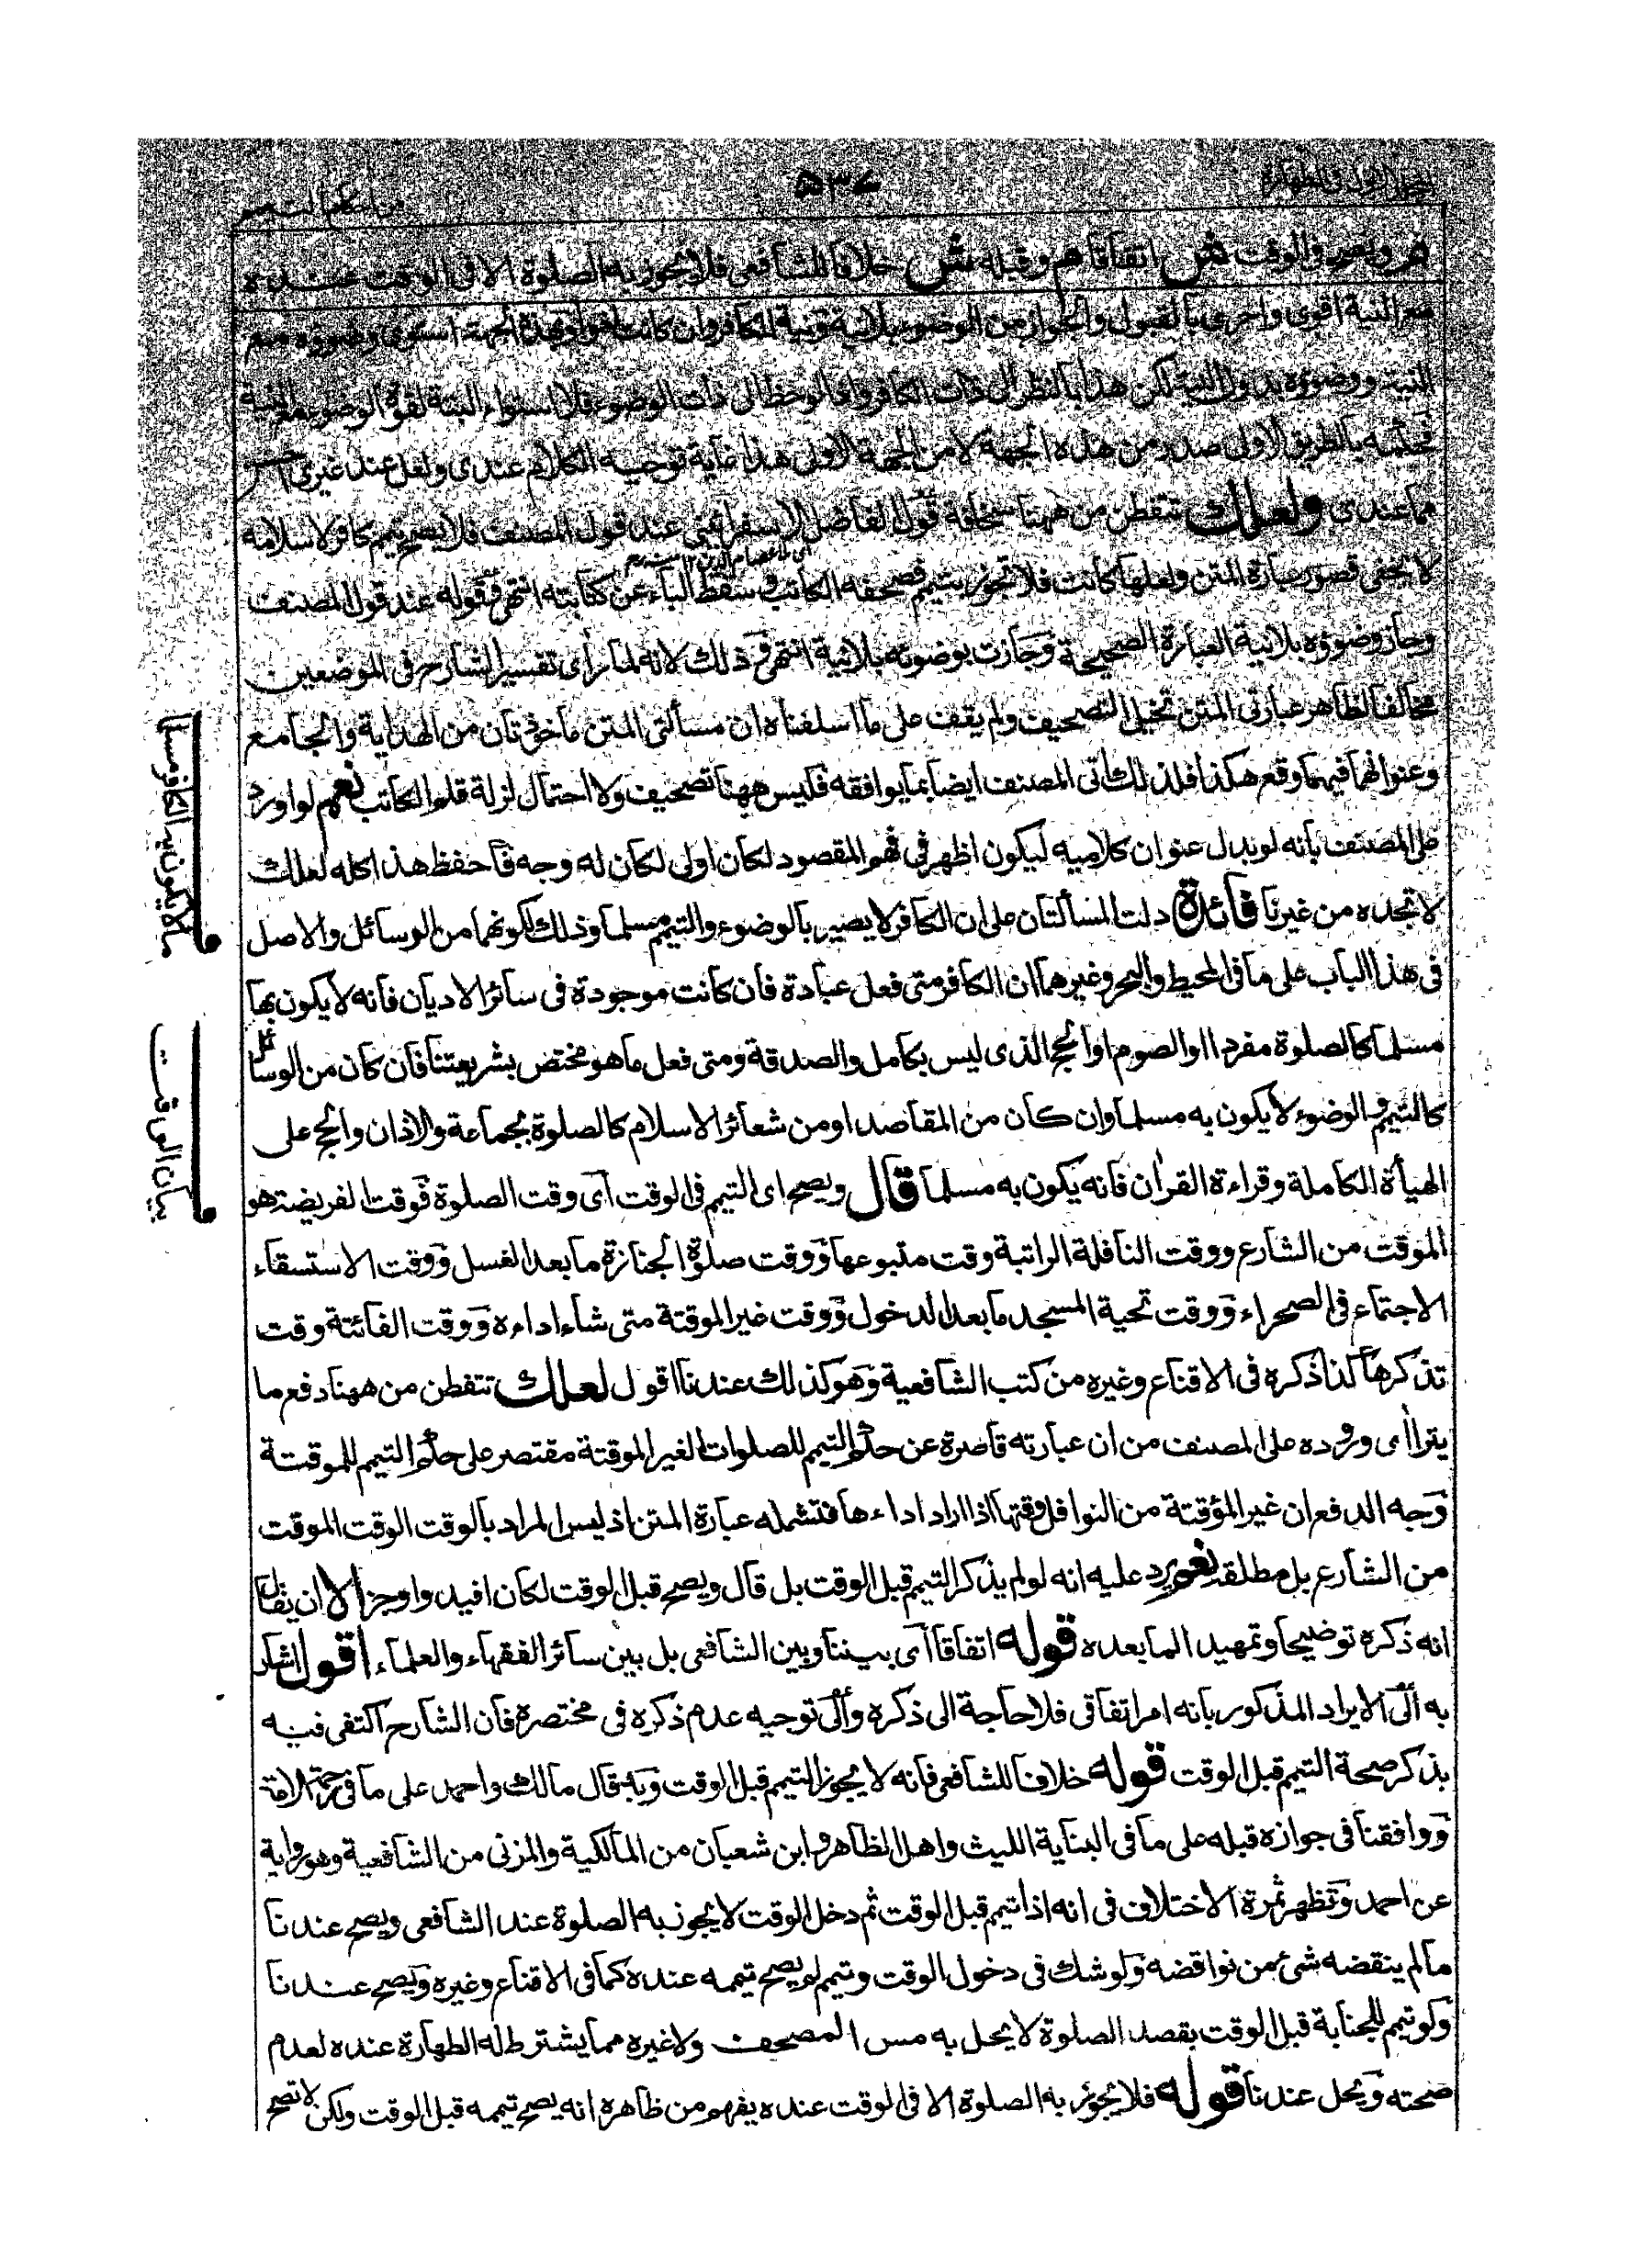 المجلد الاول فى الطهارة
٥٣٤
من احكام التيمم
م ويصح فى الوقت ش اتفاقا م وقبله ش خلافا للشافعى فلا يجوز به الصلوة الا فى الوقت عنده
مع النية اقوى واحرى بالقبول والجواز من الوضوء بلا نية ونية الكافر وان كانت لغوا وبهذه الجهة استوى وضوؤه مع
النية ووضوؤه بدون النية لكن هذا بالنظر الى ذات الكافر واذا لوحظ الى ذات الوضوء فلا استواء البتة لقوة الوضوء مع النية
فحكمه بالطريق الاولى صدر من هذه الجهة لا من الجهة الاولى هذا غاية توجيه الكلام عندى ولعل عند غيرى احسن
مما عندى ولعلك تتفطن من ههنا سخافة قول الفاضل الاسفرائنى عند قول المصنف فلا يصح تيمم كافر لاسلامه
اى ملا عصام الدين ١٢ منه
لا يخفى قصور عبارة المتن ولعلها كانت فلا تجوز بتيمم فصحفه الكاتب وسقط الباء عن كتابته انتهى وقوله عند قول المصنف
وجاز وضوؤه بلا نية العبارة الصحيحة وجازت بوضوئه بلا نية انتهى وذلك لانه لما رأى تفسير الشارح فى الموضعين
مخالفا لظاهر عبارتى المتن تخيل التصحيف ولم يقف على ما اسلفناه ان مسألتى المتن ماخوذتان من الهداية والجامع
وعنوانهما فيهما وقع هكذا فلذلك اتى المصنف ايضا بما يوافقه فليس ههنا تصحيف ولا احتمال لزلة قلم الكاتب نعم لو اورد
على المصنف بانه لو بدل عنوان كلاميه ليكون اظهر فى فهم المقصود لكان اولى لكان له وجه فاحفظ هذا كله لعلك
لا تجده من غيرنا فائدة دلت المسألتان على ان الكافر لا يصير بالوضوء والتيمم مسلما وذلك لكونهما من الوسائل والاصل
فى هذا الباب على ما فى المحيط والبحر وغيرهما ان الكافر متى فعل عبادة فان كانت موجودة فى سائر الاديان فانه لا يكون بها
مسلما كالصلوة مفردا او الصوم او الحج الذى ليس بكامل والصدقة ومتى فعل ما هو مختص بشريعتنا فان كان من الوسائل
كالتيمم والوضوء لا يكون به مسلما وان كان من المقاصد او من شعائر الاسلام كالصلوة بجماعة والاذان والحج على
الهيأة الكاملة وقراءة القران فانه يكون به مسلما قال ويصح اى التيمم فى الوقت اى وقت الصلوة فوقت الفريضة هو
الموقت من الشارع ووقت النافلة الراتبة وقت متبوعها ووقت صلوة الجنازة ما بعد الغسل ووقت الاستسقاء
الاجتماع فى الصحراء ووقت تحية المسجد ما بعد الدخول ووقت غير الموقتة متى شاء اداءه ووقت الفائتة وقت
تذكرها كذا ذكره فى الاقناع وغيره من كتب الشافعية وهو كذلك عندنا اقول لعلك تتفطن من ههنا دفع ما
يتراأى وروده على المصنف من ان عبارته قاصرة عن حكم التيمم للصلوات الغير الموقتة مقتصر على حكم التيمم للموقتة
وجه الدفع ان غير المؤقتة من النوافل وقتها اذا اراد اداءها فتشمله عبارة المتن اذ ليس المراد بالوقت الوقت الموقت
من الشارع بل مطلقه نعم يرد عليه انه لو لم يذكر التيمم قبل الوقت بل قال ويصح قبل الوقت لكان افيد واوجز الا ان يقال
انه ذكره توضيحا وتمهيدا لما بعده قوله اتفاقا اى بيننا وبين الشافعى بل بين سائر الفقهاء والعلماء اقول اشار
به الى الايراد المذكور بانه امر اتفاقى فلا حاجة الى ذكره والى توجيه عدم ذكره فى مختصره فان الشارح اكتفى فيه
بذكر صحة التيمم قبل الوقت قوله خلافا للشافعى فانه لا يجوز التيمم قبل الوقت وبه قال مالك واحمد على ما فى رحمة الامة
ووافقنا فى جوازه قبله على ما فى البناية الليث واهل الظاهر وابن شعبان من المالكية والمزنى من الشافعية وهو رواية
عن احمد وتظهر ثمرة الاختلاف فى انه اذا تيمم قبل الوقت ثم دخل الوقت لا يجوز به الصلوة عند الشافعى ويصح عندنا
ما لم ينقضه شئ من نواقضه ولو شك فى دخول الوقت وتيمم لم يصح تيممه عنده كما فى الاقناع وغيره ويصح عندنا
ولو تيمم للجنابة قبل الوقت بقصد الصلوة لا يحل به مس المصحف ولا غيره مما يشترط له الطهارة عنده لعدم
صحته ويحل عندنا قوله فلا يجوز به الصلوة الا فى الوقت عنده يفهم من ظاهره انه يصح تيممه قبل الوقت ولكن لا تصح
ف
ما لا يكون به الكافر مسلما
ف
بيان الوقت